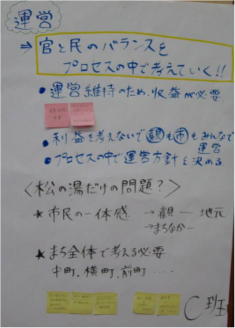 運営
⇒ 官と民のバランスを
プロセスの中で考えていく!!
● 運営維持のため、収益が必要
● 利益を考えないで 県も市もみんなで
運営
● プロセスの中で運営方針を決める
<松の湯だけの問題?>
★ 市民の一体感 → 親 — 地元
→ まちなか—
★ まち全体で考える必要
中町、横町、前町 ....
C班